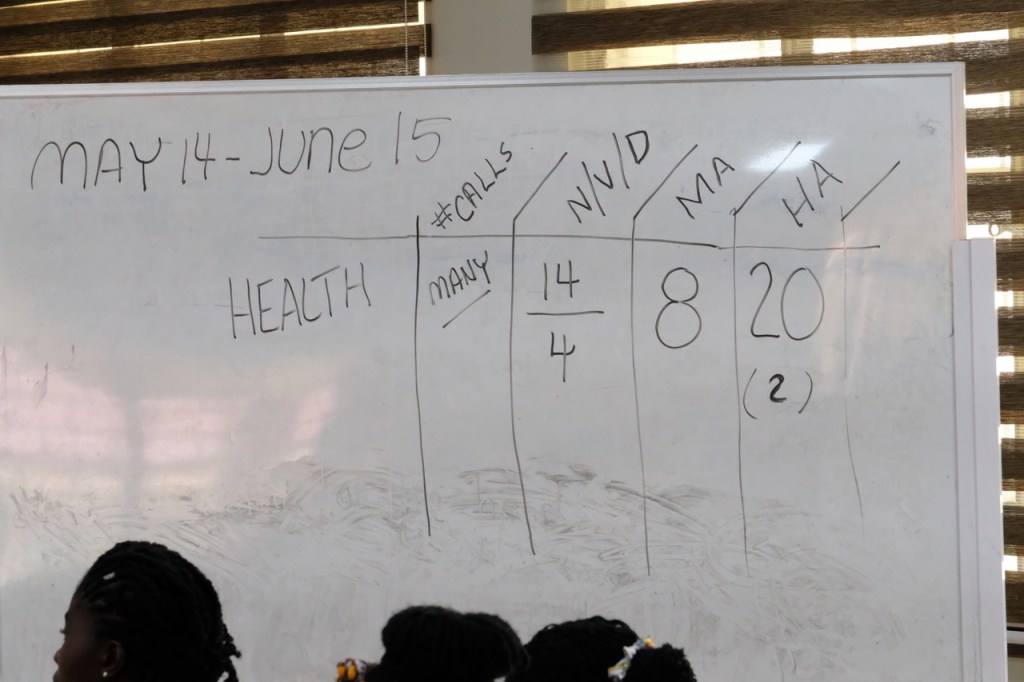 MAY 14 - JUNE 15
#CALLS N/V/D MA HA
HEALTH MANY 14 8 20
4 (2)